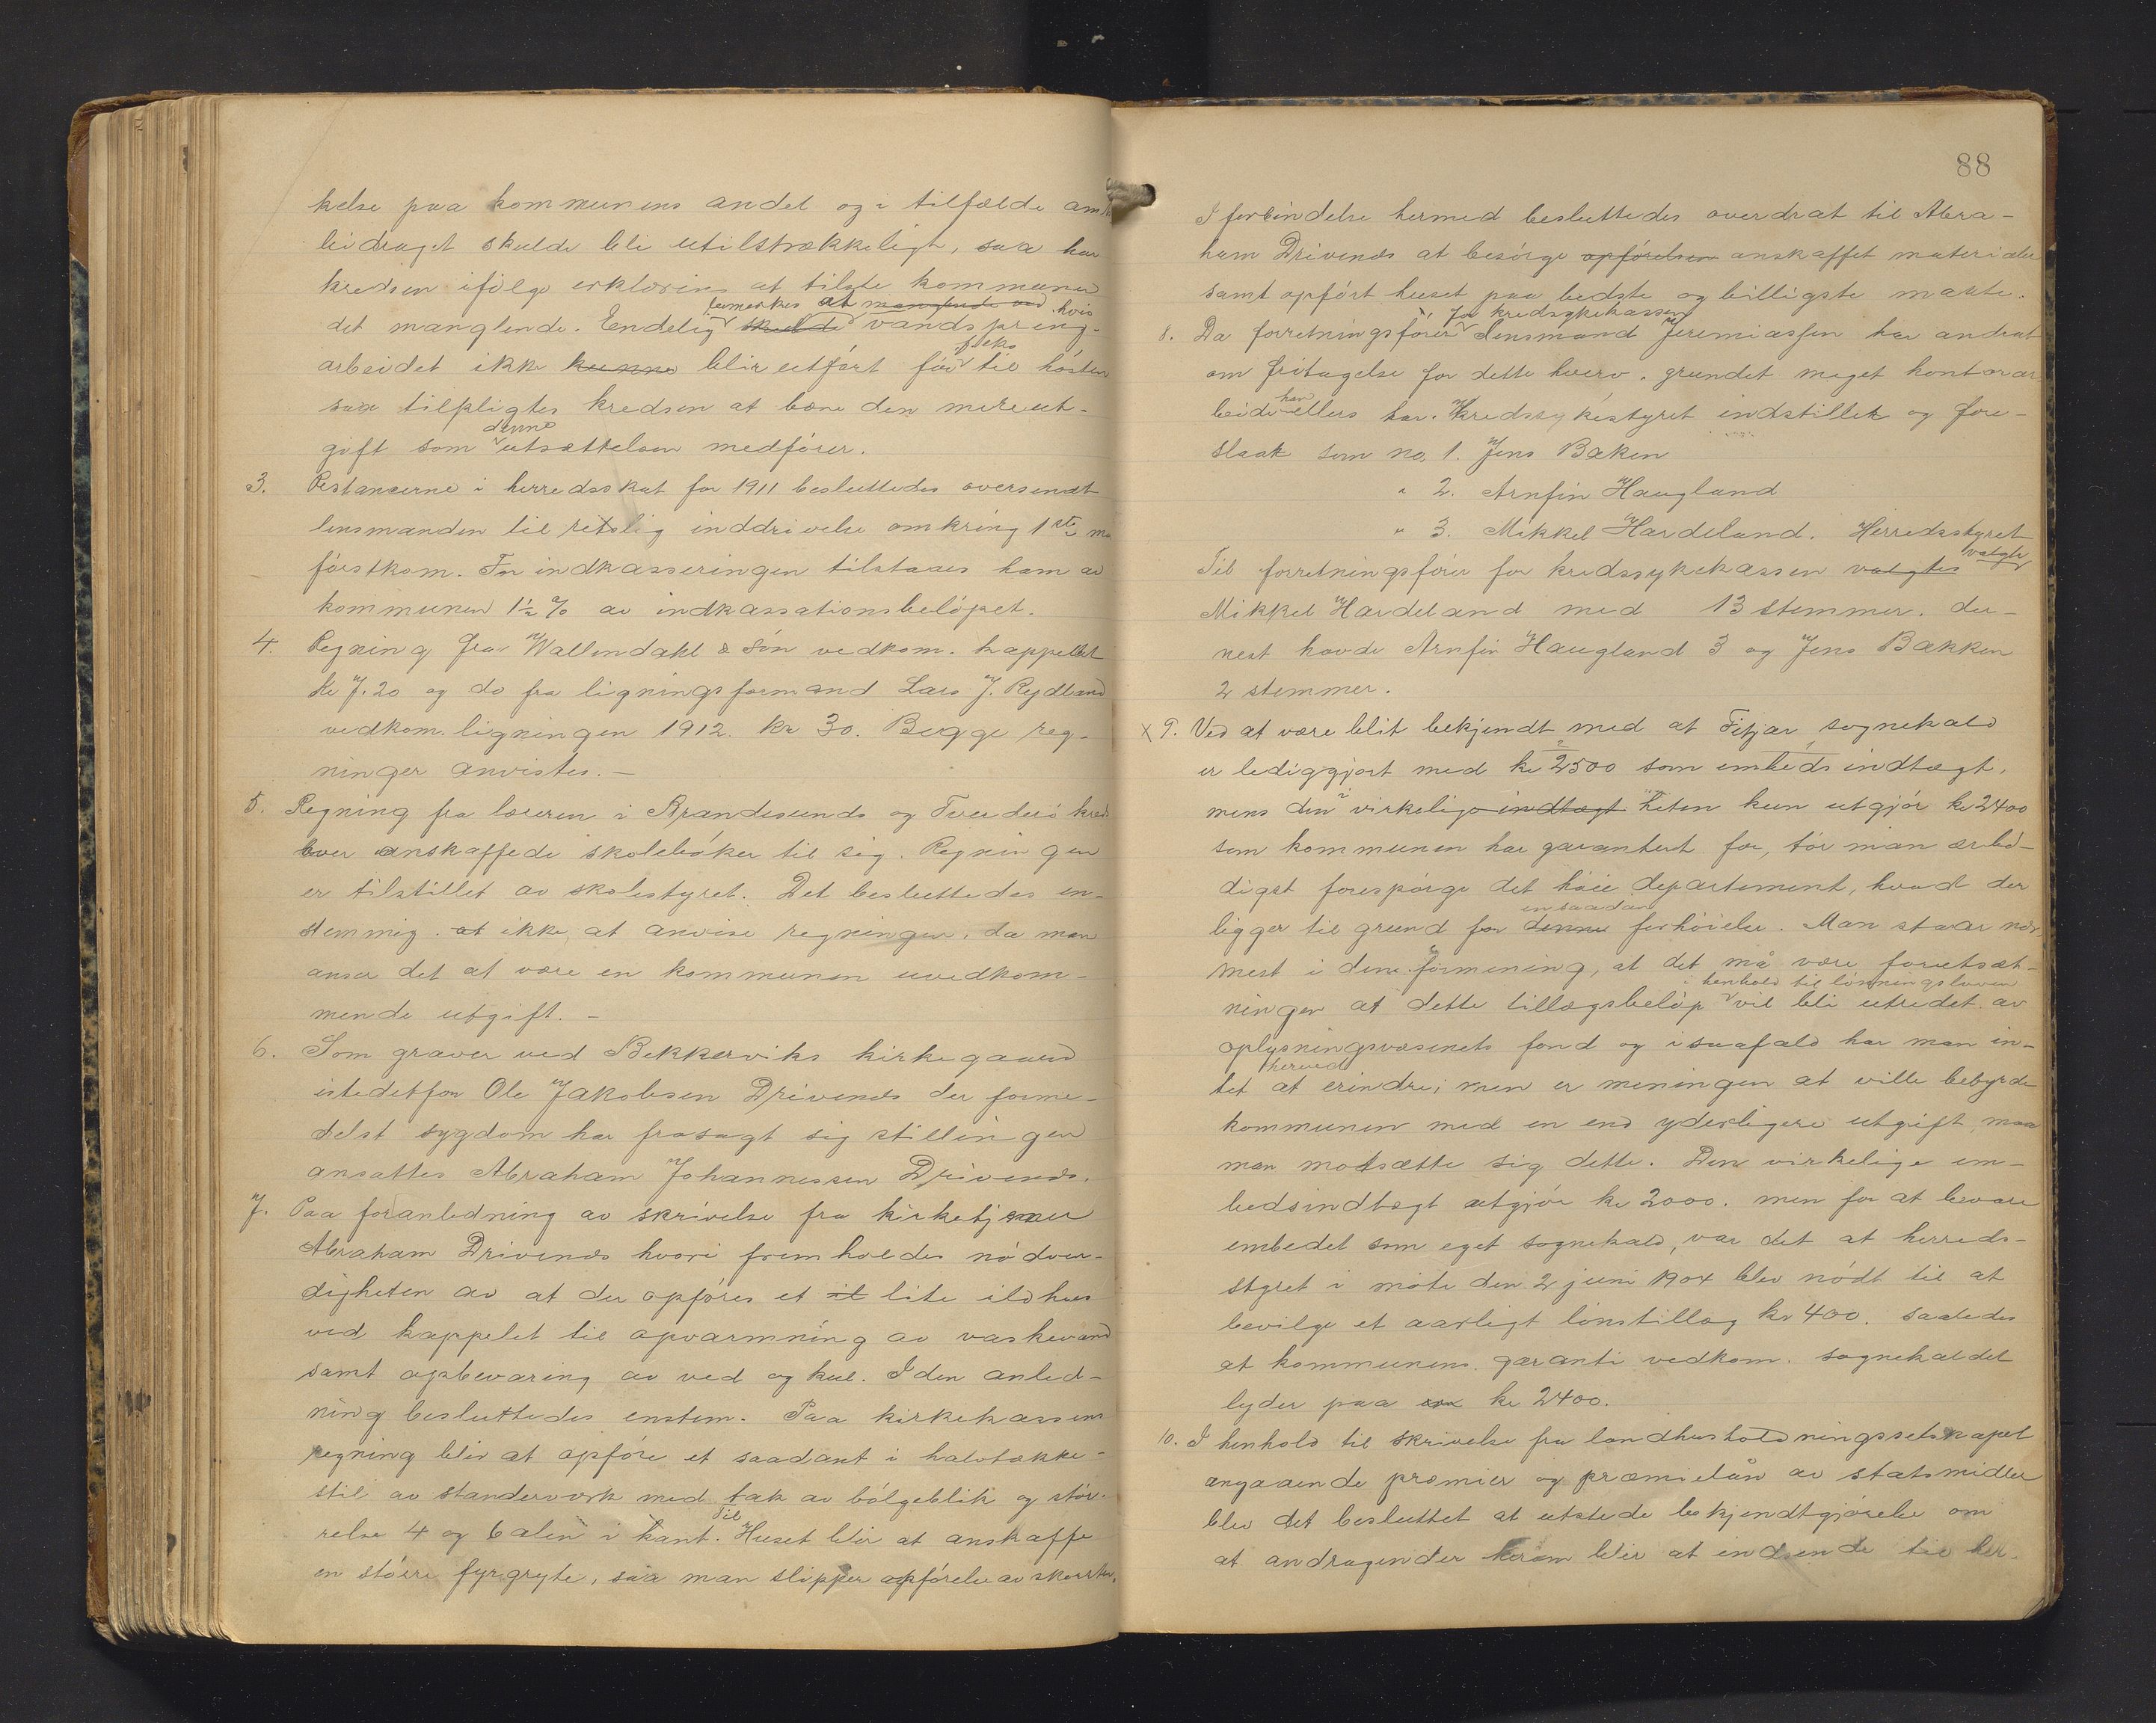 kelse paa kommunens andel og i tilfælde amts
bidraget skulde bli utilstrækkeligt, saa har
kredsen ifölge erklæring at tilsvare kommunen
bemerkes at manglende ved hvis
det manglende. Endelig skulde vandspreng-
f. eks
arbeidet ikke kunne blir utfört för til hösten
saa tilpligtes kredsen at bære den merut-
denne
gift som utsættelsen medförer.
3. Restancerne i herredsskat for 1911 besluttedes oversendt
lensmanden til retslig inddrivelse omkring 1ste
förstkom. For indkasseringen tilstaaes ham av
kommunen 1½ % av indkassationsbelöpet.
4. Regning fra Wallendahl & Sön vedkom. kappellet
Kr 7.20 og do fra ligningsformand Lars J. Rydland
vedkom. ligningen 1912. Kr 30. Begge reg-
ninger anvistes. –
5. Regning fra læreren i Brandesunds og Tverderö kreds
over anskaffede skoleböker til sig. Regningen
er tilstillet av skolestyret. Det besluttedes en-
stemmig at ikke at anvise regningen, da man
anser det at være en kommunen uvedkom-
mende utgift. –
6. Som graver ved Bekkerviks kirkegaard
istedetfor Ole Jakobsen Drivenes der forme-
delst sygdom har frasagt sig stillingen
ansattes Abraham Johannessen Drivenes.
7. Paa foranledning av skrivelse fra kirketjener
Abraham Drivenes hvori fremholdes nödven-
digheten av at der opföres et it lite ildhus
ved kappelet til opvarmning av vaskevand
samt opbevaring av ved og kul. I den anled-
ning besluttedes enstem. Paa kirkekassens
regning blir at opföre et saadant i halvtække-
stil av standerverk med tak av bölgeblik og stör-
Til
relse 4 og 6 alen i kant. Huset blir at anskaffe
en större fyrgryte, saa man slipper opförelse av skorsten.
88
I forbindelse hermed besluttedes overdrat til Abra-
ham Drivenes at besörge opförelsen anskaffet materialer
samt opfört huset paa bedste og billigste maate.
for kredssykekassen
8. Da forretningsförer lensmand Jeremiassen har andrat
om fritagelse for dette hverv, grundet meget kontorar
han
beide ellers har. Kredssykestyret indstillet og fore-
slaat som no. 1. Jens Bakken
" 2. Arnfin Haugland
" 3. Mikkel Hardeland. Herredsstyret
valgte
Til forretningsförer for kredssykekassen valgtes
Mikkel Hardeland med 13 stemmer. der-
nest havde Arnfin Haugland 3 og Jens Bakken
2 stemmer.
x 9. Ved at være blit bekjendt med at Fitjar sognekald
er lediggjort med kr 2500 som embedsindtægt,
mens den i virkelige indtægt heten kun utgjör kr 2400
som kommunen har garantert for, tör man ærbö-
digst forespörge det höie departement, hvad der
en saadan
ligger til grund for denne forhöielse. Man staar nær-
mest i den formening, at det må være forutsæt-
i henhold til lönningsloven
ningen at dette tillægsbelöp vil bli utredet av
oplysningsvæsenets fond og i saafald har man in-
herved
tet at erindre; men er meningen at ville bebyrde
kommunen med en end yderligere utgift maa
man motsætte sig dette. Den virkelige em-
bedsindtægt utgjör kr 2000. men for at bevare
embedet som eget sognekald, var det at herreds-
styret i möte den 2 juni 1904 blev nödt til at
bevilge et aarligt lönstillæg kr 400. saaledes
at kommunens garanti vedkom. sognekaldet
lyder paa kr 2400.
10. I henhold til skrivelse fra landhusholdningsselskapet
angaaende præmier og præmielån av statsmidler
blev det besluttet at utstede bekjendtgjörelse om
at andragender herom blir at indsende til her-